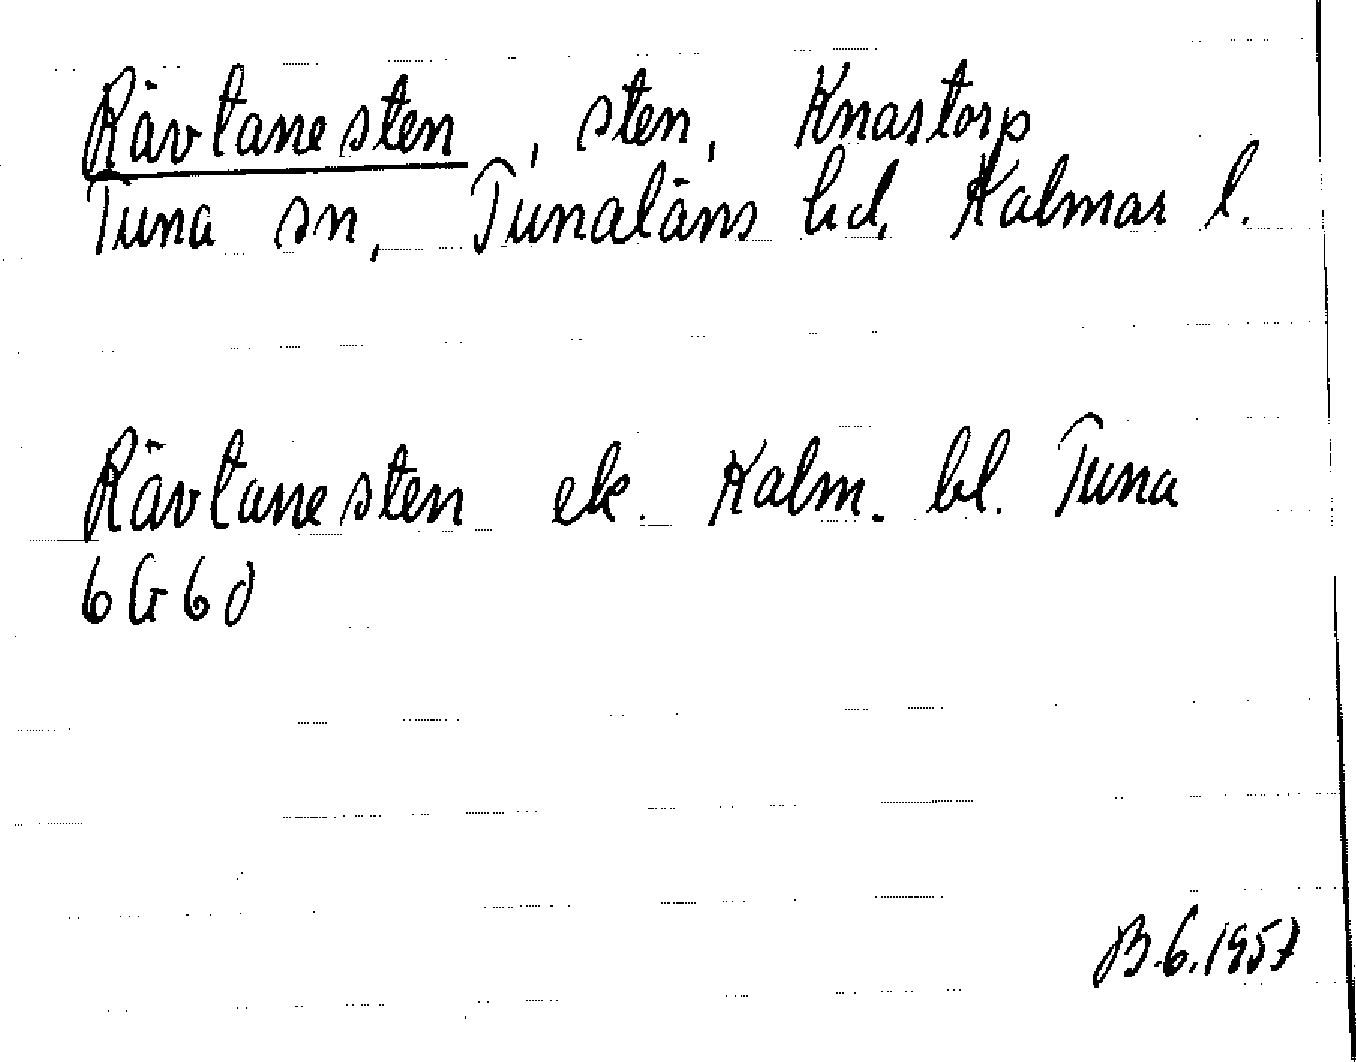 Rävlanesten, sten, Knastorp
Tuna sn, Tunaläns hd, Kalmar l.
Rävlanesten ek. Kalm. bl. Tuna
6G6d
B.G.1957